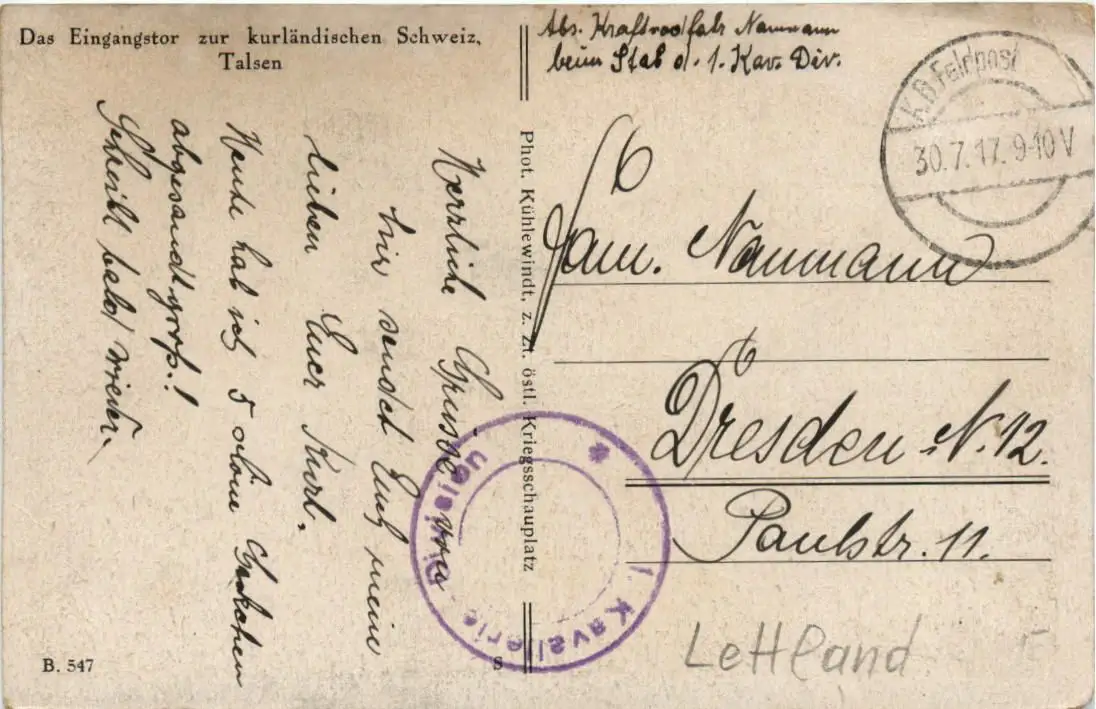 Das Eingangstor zur kurländischen Schweiz,
Talsen
Abs. Kraftradfahr Naumann
beim Stab d. 1. Kav. Div.
K.B. Feldpost
30.7.17. 9-10 V
Fam. Naumann
Dresden N. 12.
Paulstr. 11.
Herzliche Grüsse von
hier sendet Euch meine
lieben Euer Kurl.
Heute hab ich 5 ohne
abgesandt
Schreibt bald wieder.
Phot. Kühlewindt, z. Zt. östl. Kriegsschauplatz
* 1. Kavallerie Division
B. 547
S
Lettland